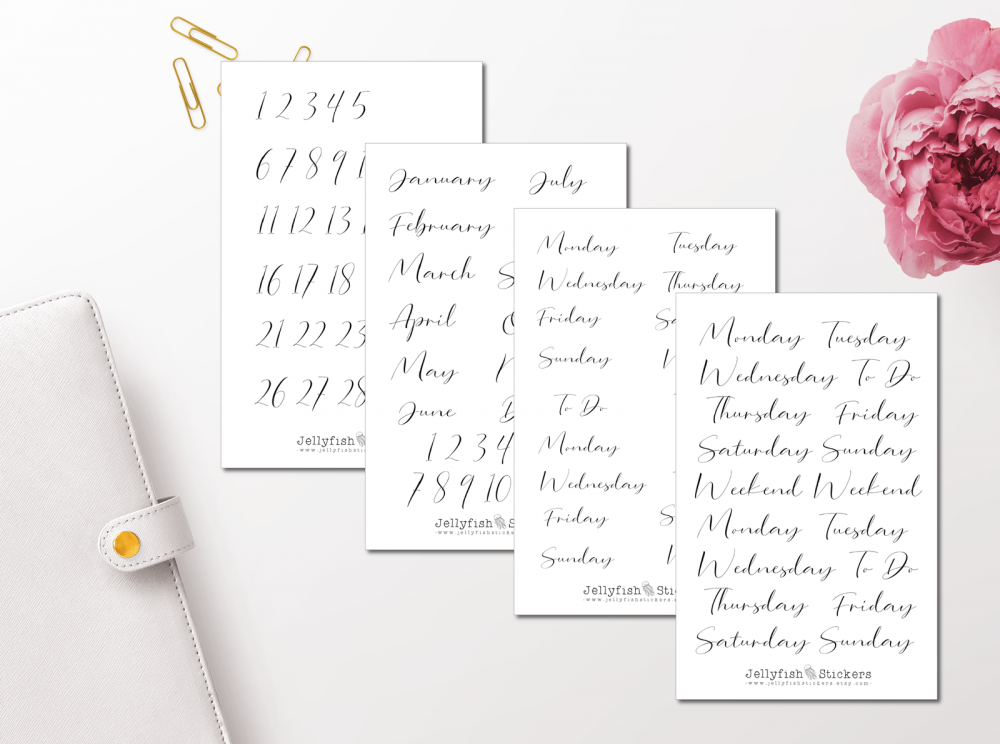 1 2 3 4 5
6 7 8 9
11 12 13
16 17 18
21 22 23
26 27 28
Jellyfish
-www.jellyfishstic
January July
February
March
April
May
June
1 2 3 4
7 8 9 10
Jellyfish S
-www.jellyfishsticker
Monday Tuesday
Wednesday Thursday
Friday
Sunday
To Do
Monday
Wednesday
Friday
Sunday
Jellyfish Stic
-www.jellyfishstickers.e
Monday Tuesday
Wednesday To Do
Thursday Friday
Saturday Sunday
Weekend Weekend
Monday Tuesday
Wednesday To Do
Thursday Friday
Saturday Sunday
Jellyfish Stickers
-www.jellyfishstickers.etsy.com-